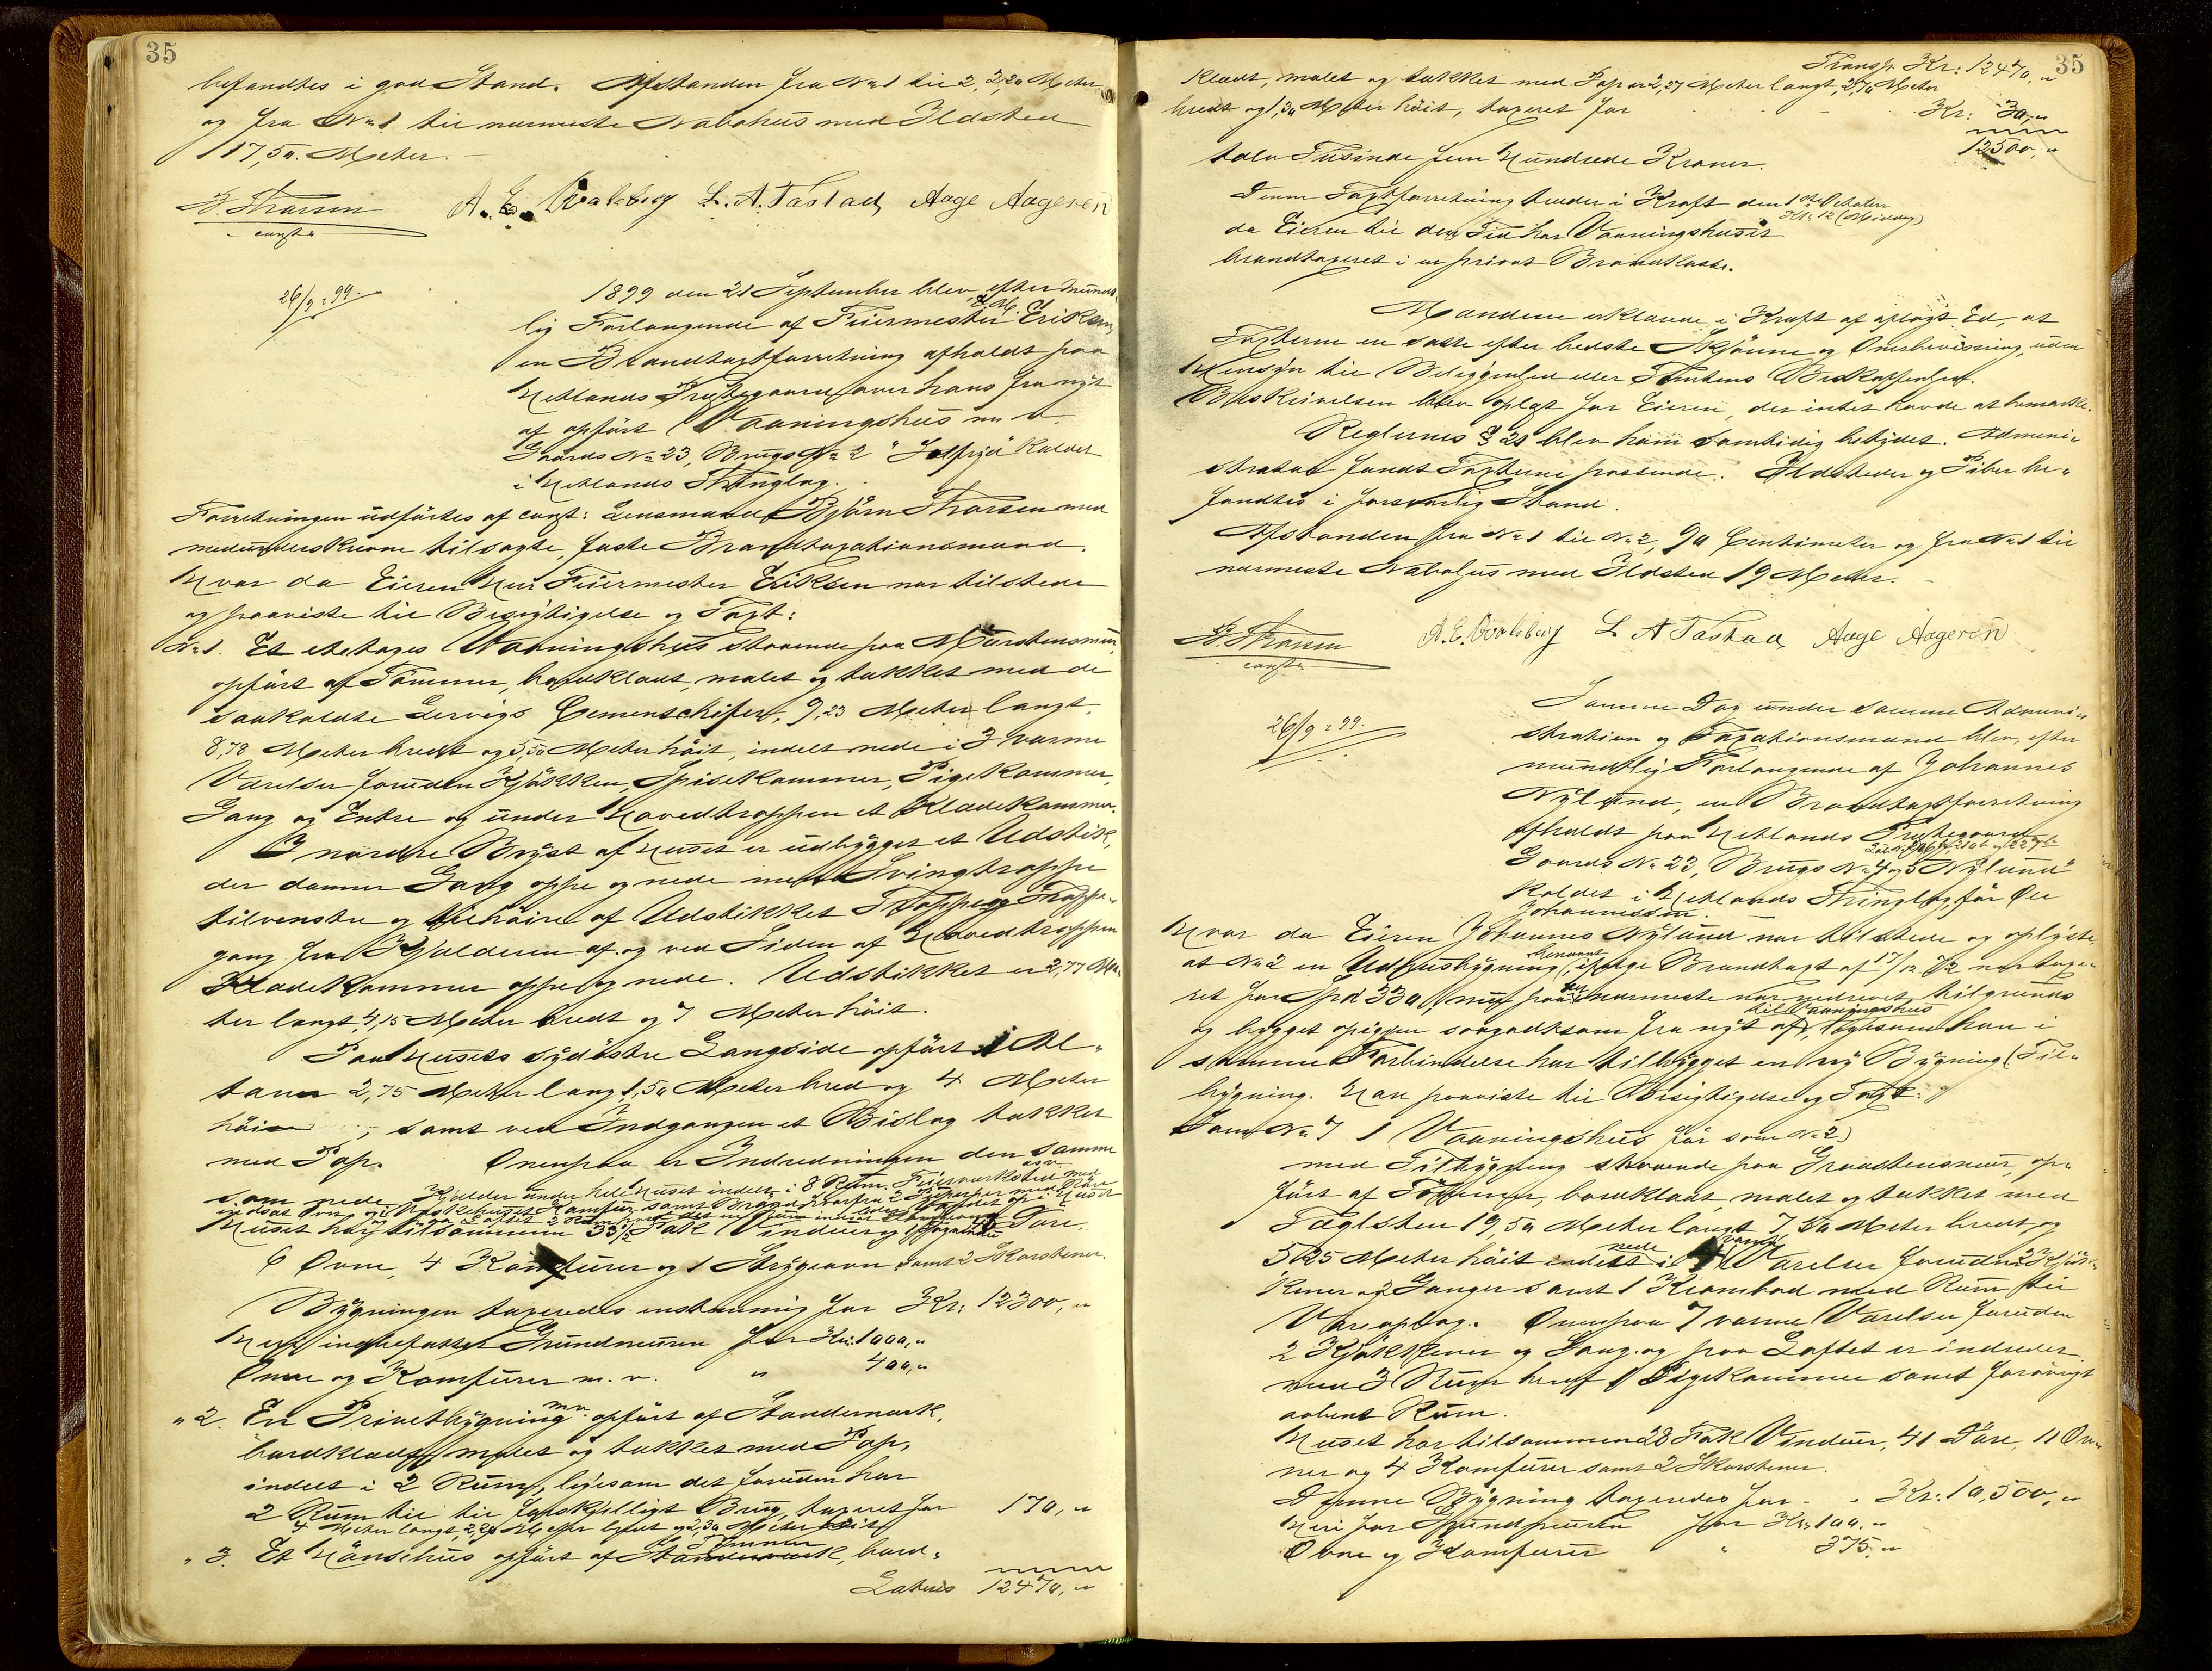 35
befandtes i god Stand. Afstanden fra No 1 til 2, 2,20 Meter
og fra No 1 til nærmeste Nabohus med Ildsted
117,50. Meter.
B. Thorsen
const.
A. E. Vatsberg L. A. Tastad, Aage Aageren
26/9 = 99.
1899 den 21 September blev efter mundt-
lig Forlangende af Fyrmester E. M. Eriksen
en Brandtaxtforretning afholdt paa
Hetlands Præstegaard over hans fra nyt
af opført Vaaningshus m. v.
Gaards No 23, Brugs No 2 "Solfryd" kaldet
i Hetlands Thinglag.
Forretningen udførtes af const: Lensmand Bjørn Thorsen med
medunderskrevne tilsagte, faste Brandtaxationsmænd.
Hvor da Eieren Herr Fyrmester Eriksen var tilstede
og paaviste til Besigtigelse og Taxt:
No 1. Et etetages Vaaningshus staaende paa Murstensmur,
opført af Tømmer, bordklædt, malet og tækket med de
saakaldte Lervigs Cementskifer, 9,23 Meter langt,
8,78 Meter bredt og 5,50 Meter høit, indelt nede i 3 varme
Værelser foruden Kjøkken, Spisekammer, Pigekammer,
Gang og Entre og under Hovedtrappen et Klædekammer.
I nordre Bryst af Huset er udbygget et Udstik,
der danner Gang oppe og nede med Svingtrappe
tilvenstre og tilhøire af Udstikket Trappe og Trappe-
gang fra Kjelderen af og ved Siden af Hovedtrappen
Klædekammer oppe og nede. Udstikket er 2,77 Me-
ter langt, 4,15 Meter bredt og 7 Meter høit.
Paa Husets sydøstre Langside opført 1 Al-
tan 2,75 Meter lang 1,50 Meter bred og 4 Meter
høi; samt ved Indgangen et Bislag tækket
med Pap. Ovenpaa er Indredningen den samme
som nede. Kjelder under hele Huset indelt i 8 Rum.
Huset har tilsammen 33 1/2 Fak Vinduer og Døre.
6 Ovne, 4 Komfurer og 1 Strygeovn samt 2 Skorstener.
Bygningen taxeredes enstemmig for Kr: 12300,"
Heri indbefattet Grundmuren for Kr: 1000,"
Ovne og Komfurer m. v. " 400,"
" 2. En Privetbygning m v. opført af Standerværk,
bordklædt, malet og tækket med Pap,
indelt i 2 Rum, ligesom det foruden har
2 Rum til til forskjelligt Brug, taxeret for 170,"
4 Meter langt, 2,20 Meter bredt og 2,30 Meter høit
" 3. Et Hønsehus opført af Standerværk, bord- af Tømmer
Lateris 12470,"
35
Transp. Kr: 12470,"
klædt, malet og tækket med Pap er 2,27 Meter langt, 2,70 Meter
bredt og 1,30 Meter høit, taxeret for Kr: 30,"
12500,"
tolv Tusinde fem Hundrede Kroner.
Denne Taxtforretning træder i Kraft den 1ste Oktober
Kl: 12 (Middag)
da Eieren til den Tid har Vaaningshuset
brandtaxeret i en privat Brandkasse.
Mændene erklærede i Kraft af aflagt Ed, at
Taxterne er satte efter bedste Skjønne og Overbevisning, uden
Hensyn til Beliggenhed eller Tomtens Beskaffenhed.
Beskrivelsen blev oplæst for Eieren, der intet havde at bemærke.
Reglernes § 21 blev ham samtidig betydet. Admini-
strator fandt Taxterne passende. Ildsteder og Piber be-
fandtes i forsvarlig Stand.
Afstanden fra No 1 til No 2, 90 Centimeter og fra No 1 til
nærmeste Nabohus med Ildsted 19 Meter.
B. Thorsen
const.
A. E. Vatsberg L. A. Tastad, Aage Aageren
26/9 = 99.
Samme Dag under samme Admini-
stration og Taxationsmænd blev, efter
mundtlig Forlangende af Johannes
Nylund, en Brandtaxtforretning
afholdt paa Hetlands Præstegaard
Gaards No 23, Brugs No 4 og 5 "Nylund"
kaldet i Hetlands Thinglag, før
Johannessen.
Hvor da Eieren Johannes Nylund var tilstede og oplyste,
at No 2 en Udhusbygning benævnt, ifølge Brandtaxt af 17/12 72 var taxe-
ret for Spd 330, nu paa det nærmeste var nedrevet tilgrunds
og bygget opigjen saagodtsom fra nyt af til Vaaningshus, ligesom han i
samme Forbindelse har tilbygget en ny Bygning (Til-
bygning. Han paaviste til Besigtigelse og Taxt:
Som No 7 1 Vaaningshus før som No 2)
med Tilbygning staaende paa Graastensmur, op-
ført af Tømmer, bordklædt, malet og tækket med
Taglsten 19,50 Meter langt 7,50 Meter bredt og
5,25 Meter høit indelt nede i 4 varme Værelser foruden 2 Kjøk-
kener og 2 Ganger samt 1 Krambod med Rum til
Vareoplag. Ovenpaa 7 varme Værelser foruden
2 Kjøkkener og Gang, og paa Loftet er indredet
med 3 Rum heraf 1 Pigekammer samt forøvrigt
aabent Rum.
Huset har tilsammen 28 Fak Vinduer, 41 Døre, 11 Ov-
ner og 4 Komfurer samt 2 Skorstener.
Denne Bygning taxeredes for Kr: 10,500,"
Heri for Grundmuren for Kr: 100,"
Ovne og Komfurer " 375,"